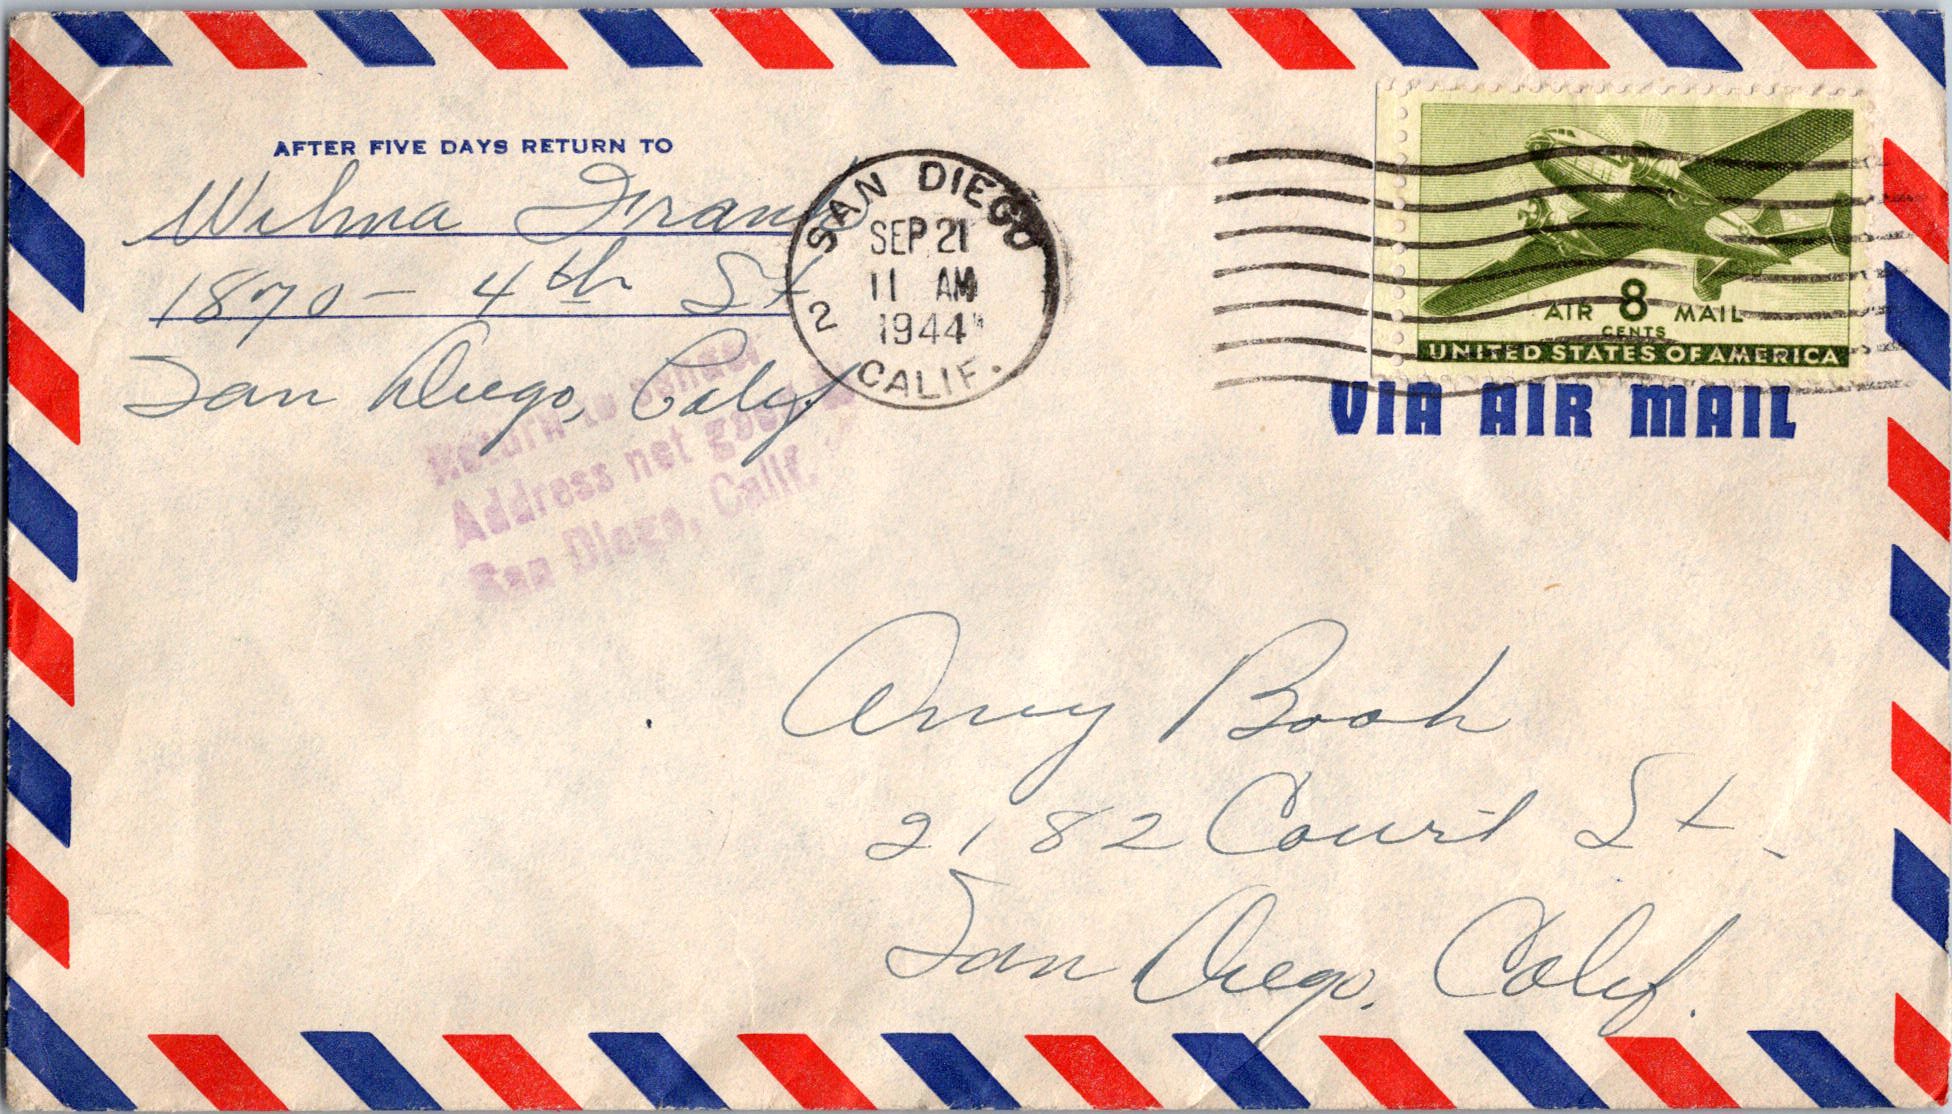 AFTER FIVE DAYS RETURN TO
Wilma Frank
1870 - 4th St
San Diego, Calif.
SAN DIEGO
SEP 21
11 AM
1944
2
CALIF.
AIR 8 MAIL
CENTS
UNITED STATES OF AMERICA
VIA AIR MAIL
Return to sender
Address not good
San Diego, Calif.
Book
2182 Court St.
San Diego, Calif.